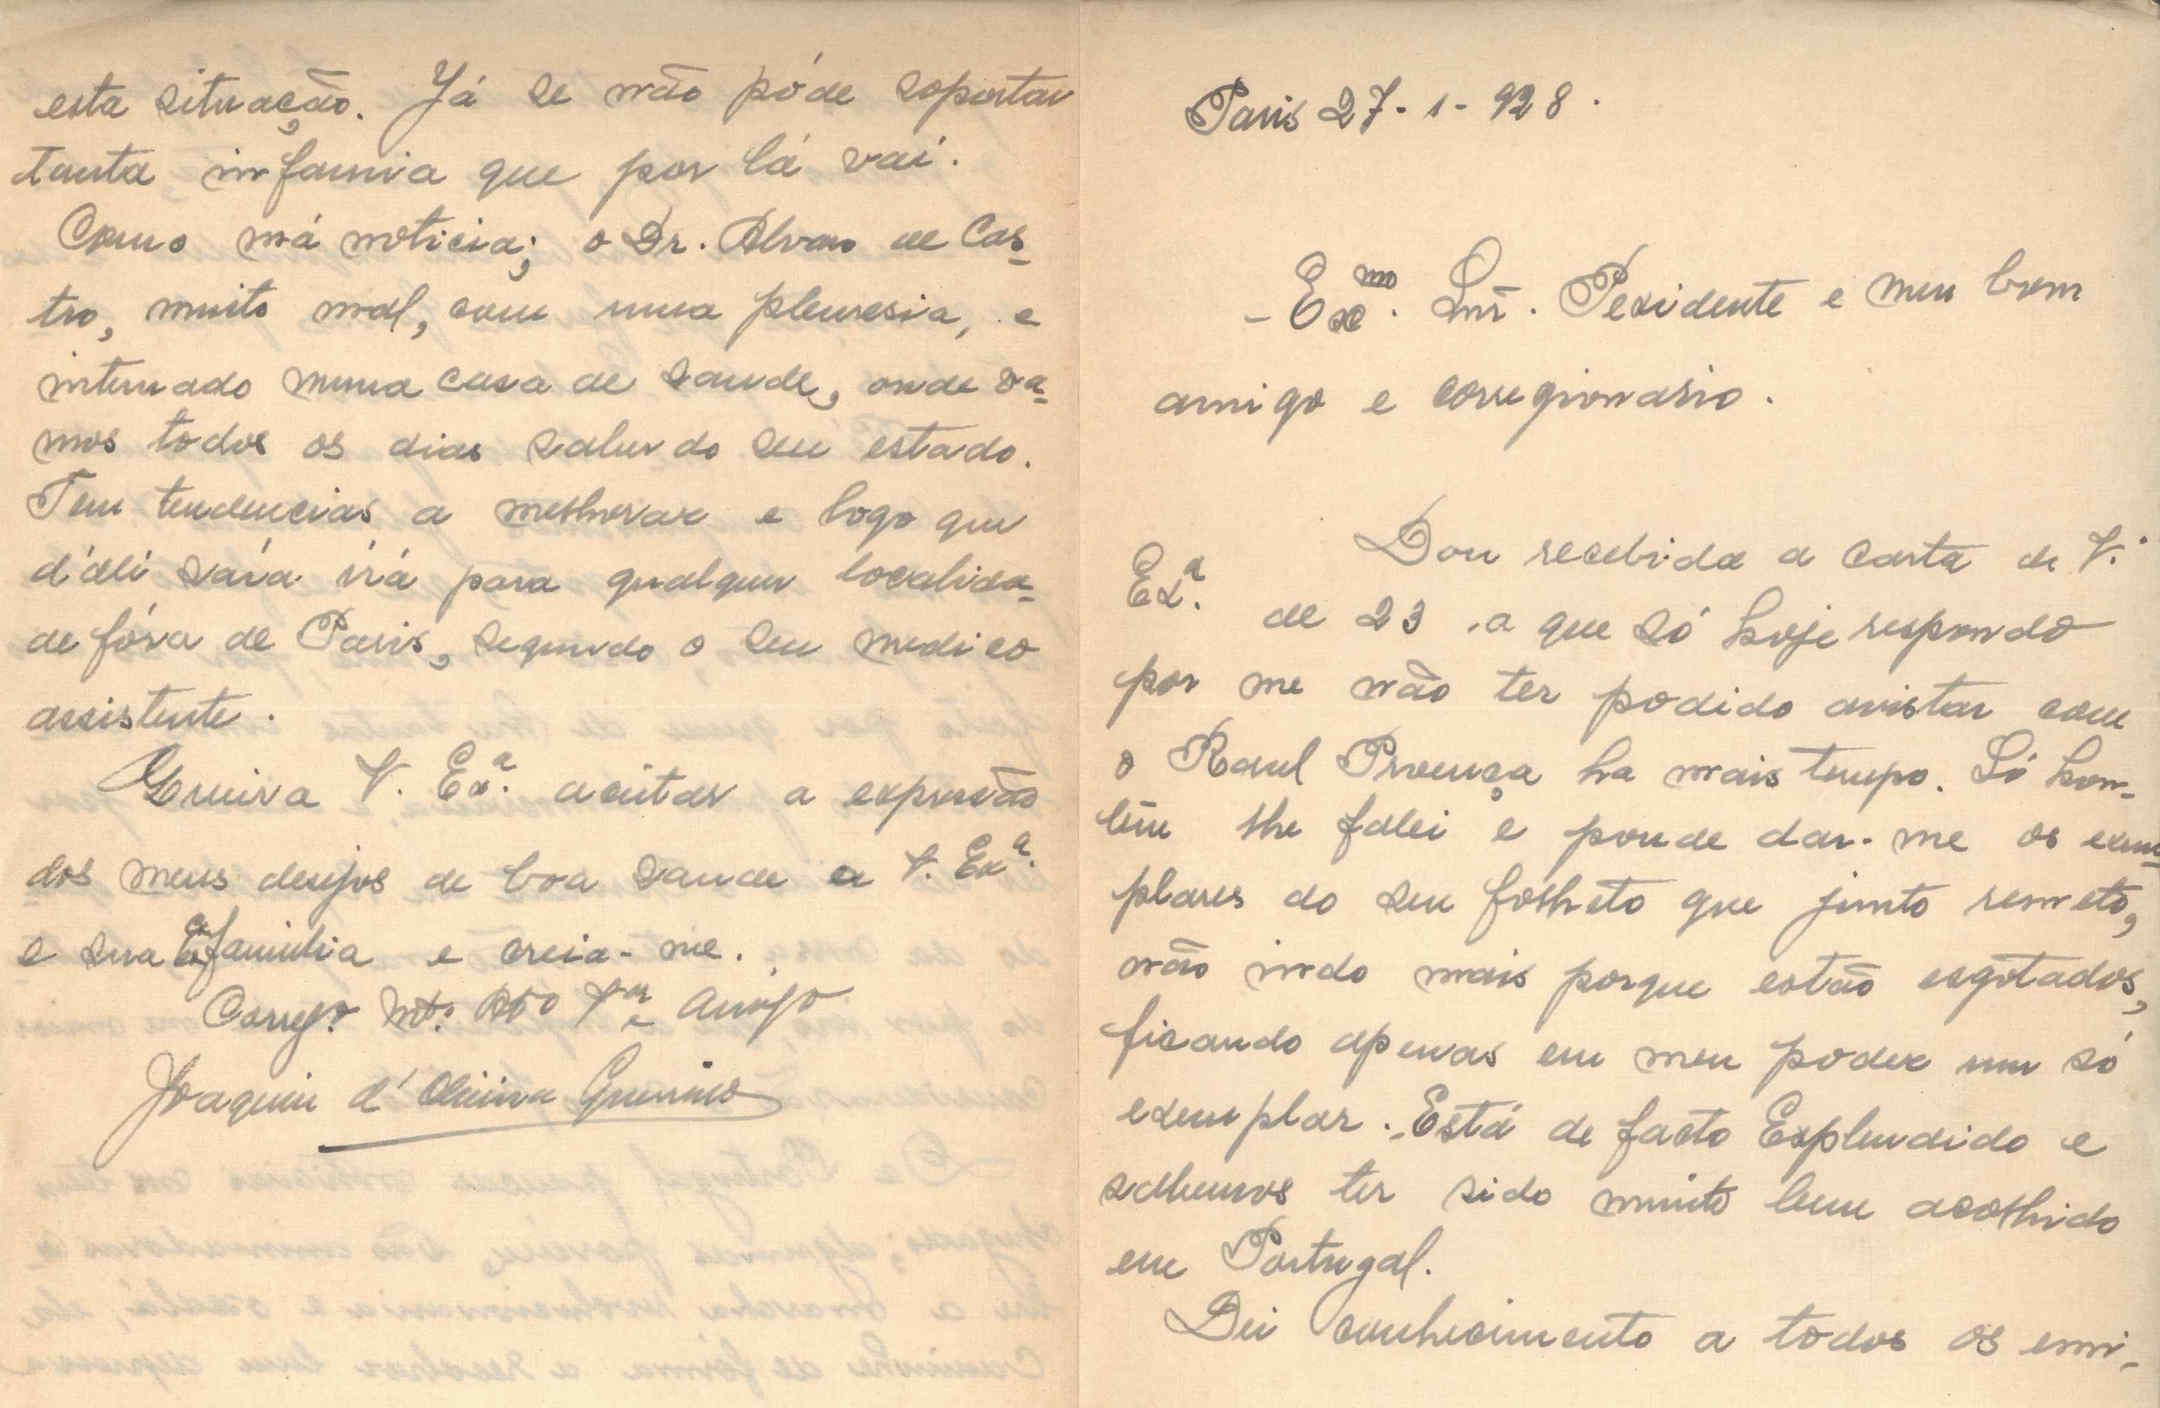 Paris 27-1-928.
- Exmo. Snr. Pesidente e meu bom
amigo e corregionario.
Dou recebida a carta de V.
Exa. de 23, a que só hoje respondo
por me não ter podido avistar com
o Raul Proença ha mais tempo. Só hon-
tem lhe falei e poude dar-me os exem-
plares do seu folheto que junto remeto,
não indo mais porque estão esgotados,
ficando apenas em meu poder um só
exemplar. Está de facto Esplendido e
sabemos ter sido muito bem acolhido
em Portugal.
Dei conhecimento a todos os emi-
esta situação. Já se não póde soportar
tanta infamia que por lá vai.
Como má noticia; o Dr. Alvaro de Cas-
tro, muito mal, com uma pleuresia, e
internado numa casa de saude, onde va-
mos todos os dias saber do seu estado.
Tem tendencias a melhorar e logo que
d'ali sáia irá para qualquer localida-
de fóra de Paris, segundo o seu medico
assistente.
Queira V. Exa. aceitar a expressão
dos meus desejos de boa saude a V. Exa.
e sua Exa familia e creia-me.
Corrego. Mto. Atto Vor e amigo
Joaquim d'Oliveira